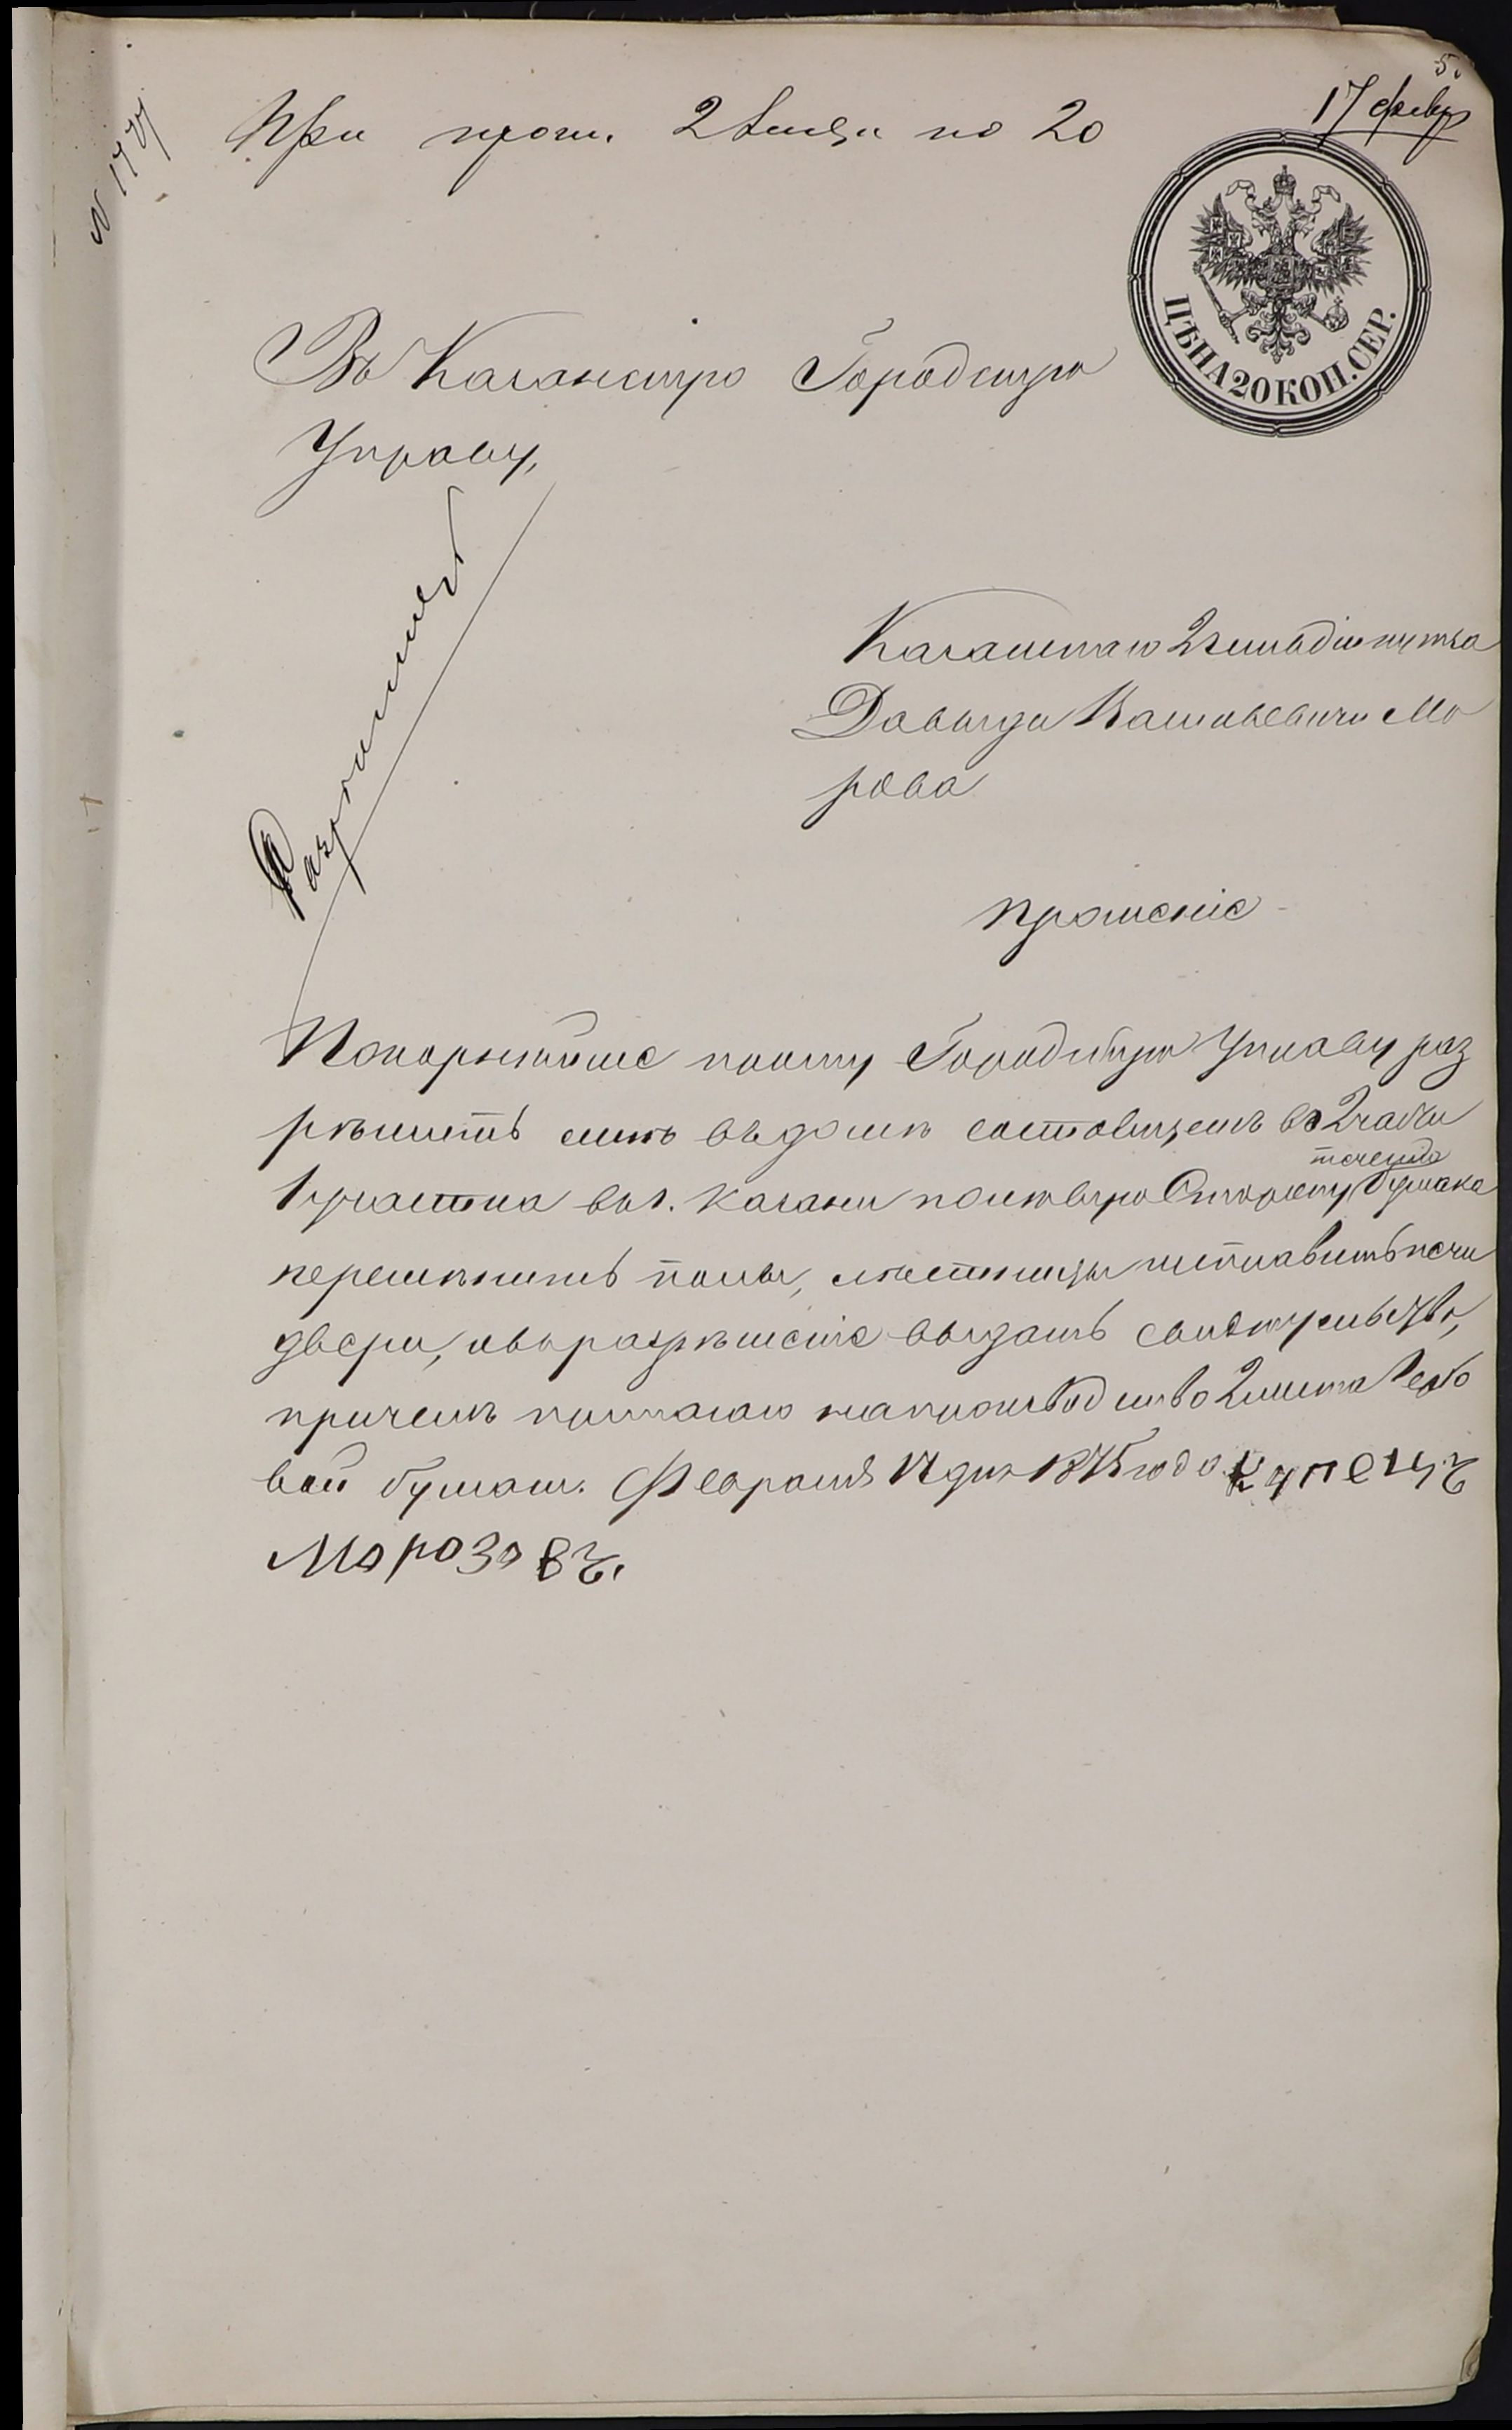 5.
17 февр
N 1771
При прош. 2 листа по 20
ЦѢНА 20 КОП. СЕР.
Въ Казанскую Городскую
Управу,
Разрешить
Казанскаго 2 гильдіи купца
Давыда Васильевича Мо
розова
прошеніе
Покорнѣйше прошу Городскую Управу раз
рѣшить мнѣ въ домѣ состоящемъ во 2 части
теченію
1 участка в г. Казани по левую Сторону Булака
перемѣнить полы, лѣстницы исправить печи
двери, и въ разрѣшеніе выдать свидѣтельство,
причемъ прилагаю на производство 2 листа гербо
вой бумаги. Февраля 17 дня 1875 года Купецъ
Морозовъ.